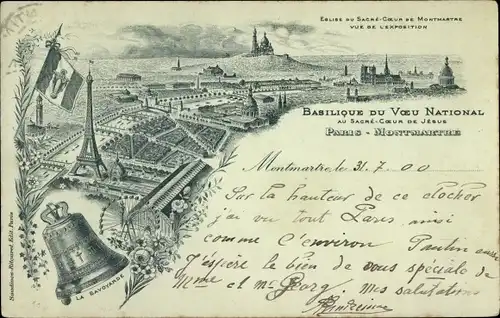 EGLISE DU SACRÉ-CŒUR DE MONTMARTRE
VUE DE L'EXPOSITION
BASILIQUE DU VŒU NATIONAL
AU SACRÉ-CŒUR DE JÉSUS
PARIS - MONTMARTRE
Montmartre, le 31. 7. 00
Sur la hauteur de ce clocher
j'ai vu tout Paris ainsi
comme l'environ
J'éspère le bien de vous spéciale de
Mme et Mr Georg. Mes salutations
LA SAVOYARDE